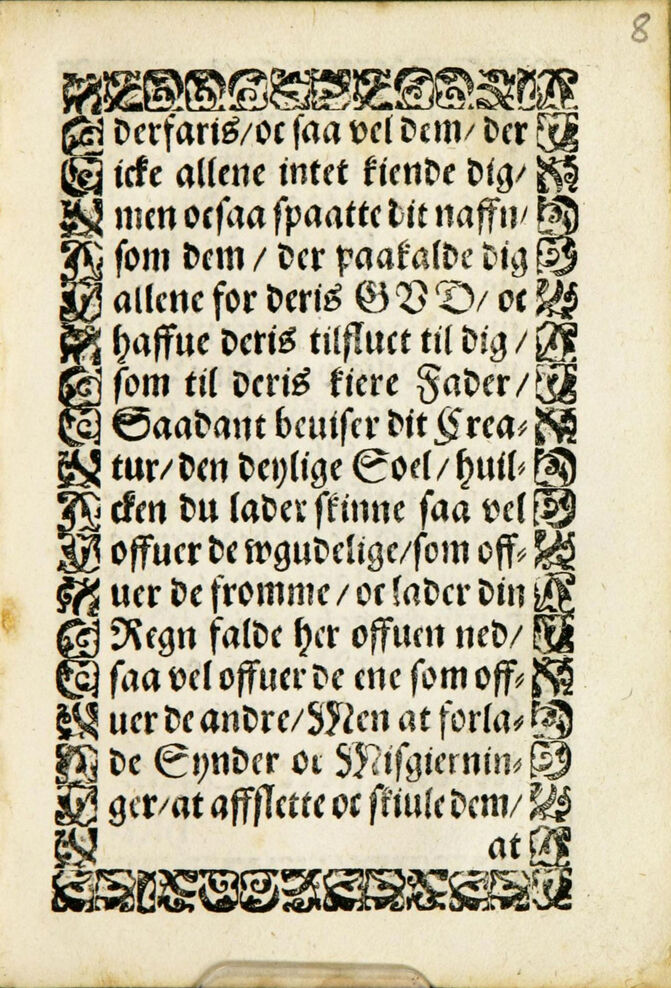 8
derfaris/oc saa vel dem/ der
icke allene intet kiende dig/
men ocsaa spaatte dit naffn/
som dem / der paakalde dig
allene for deris GVD/ oc
haffue deris tilfluct til dig /
som til deris kiere Fader/
Saadant beuiser dit Crea⸗
tur/ den deylige Soel / huil⸗
cken du lader skinne saa vel
offuer de wgudelige/som off⸗
uer de fromme / oc lader din
Regn falde her offuen ned/
saa vel offuer de ene som off⸗
uer de andre/ Men at forla⸗
de Synder oc Misgiernin⸗
ger/at affslette oc skiule dem/
at